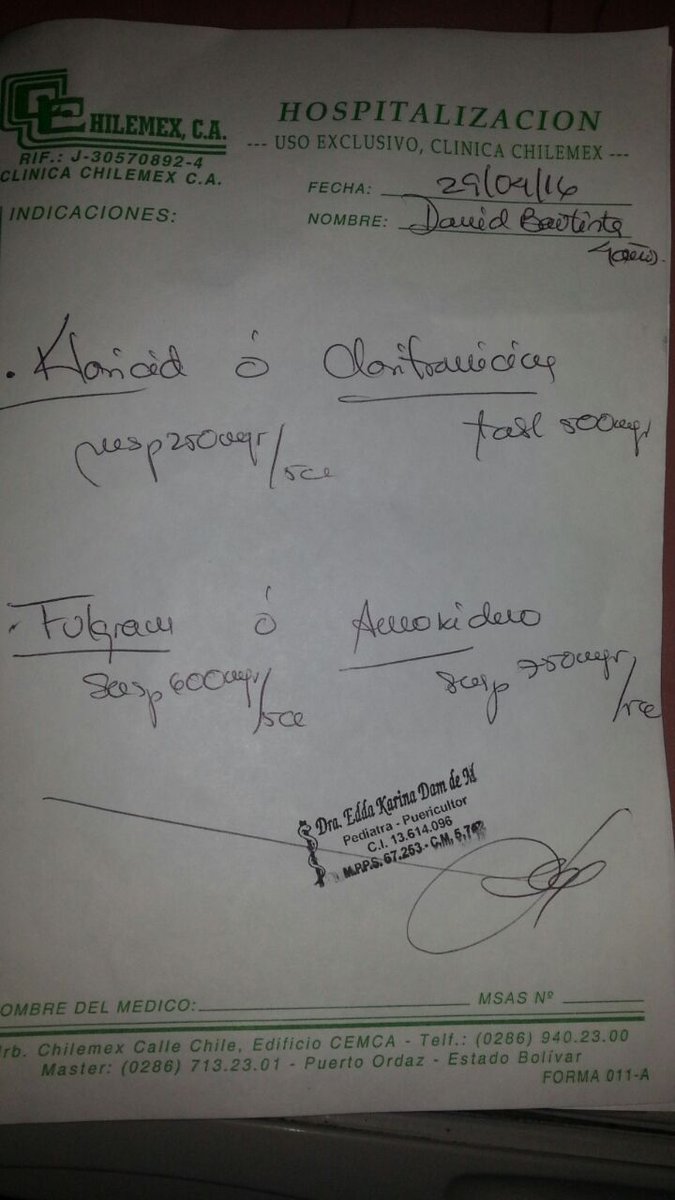 CHILEMEX, C.A.
RIF.: J-30570892-4
CLINICA CHILEMEX C.A.
HOSPITALIZACION
--- USO EXCLUSIVO, CLINICA CHILEMEX ---
FECHA: 29/04/16
INDICACIONES:
NOMBRE: David Bautista
4 años.
. Klaricid ó Claritromicina
susp 250mgr/5cc tabl 500mgr
. Fulgram ó Amoxiduo
Susp 600mgr/5cc susp 750mgr/5cc
Dra. Edda Karina Dam de M
Pediatra - Puericultor
C.I. 13.614.096
M.P.P.S. 67.253 - C.M. 5.742
OMBRE DEL MEDICO: MSAS Nº
rb. Chilemex Calle Chile, Edificio CEMCA - Telf.: (0286) 940.23.00
Master: (0286) 713.23.01 - Puerto Ordaz - Estado Bolívar
FORMA 011-A